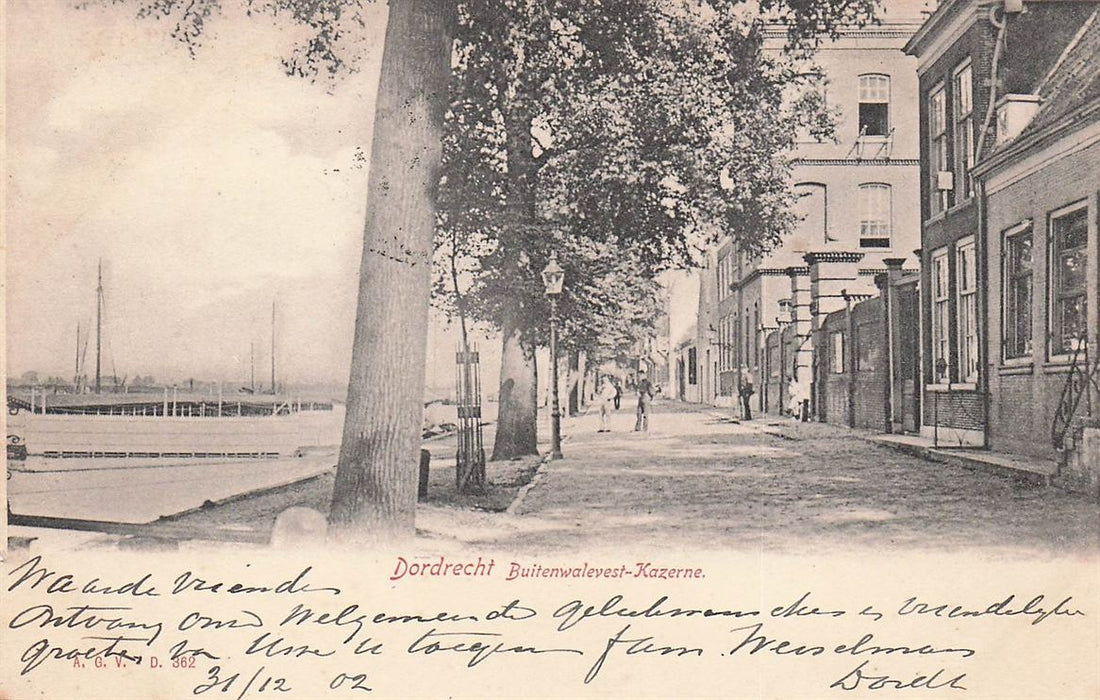 Dordrecht Buitenwalevest-Kazerne.
Waarde Vrienden
Ontvang onze Welgemeende gelukwenschen en vriendelyke
groeten van Uwe U toegen Fam. Weiselman
A. G. V. D. 362
31/12 02 Dordt